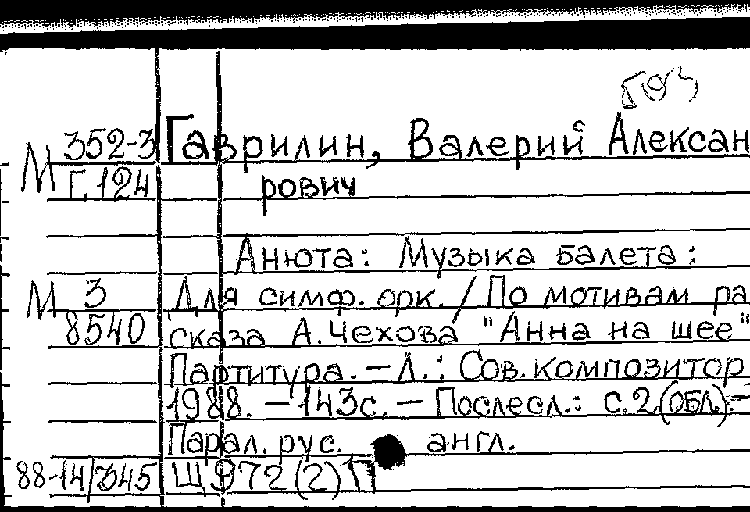 М 352-3 Гаврилин, Валерий Алексан
Г.124 рович
Анюта: Музыка балета:
М 3 Для симф. орк. / По мотивам ра
8540 сказа А. Чехова "Анна на шее"
Партитура. – Л.: Сов. композитор
1988. – 143с. – Послесл.: с.2 (обл.). –
Парал. рус. англ.
88-14/345 Щ972(2)П